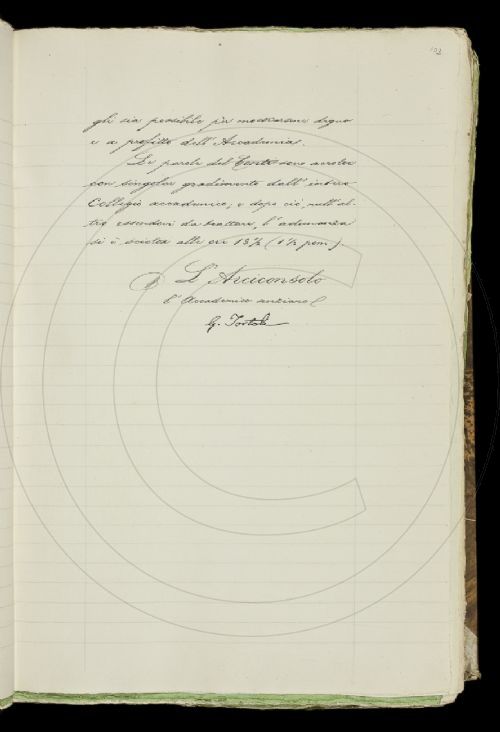 103
gli sia possibile più mostrarsene degno
e a profitto dell'Accademia.
Le parole del Conti sono accolte
con singolar gradimento dall'intero
Collegio accademico; e dopo ciò, null'al-
tro essendovi da trattare, l'adunanza
si è sciolta alle ore 13 ½ (1 ½ pom.).
L'Arciconsolo
l'Accademico anziano
G. Tortoli